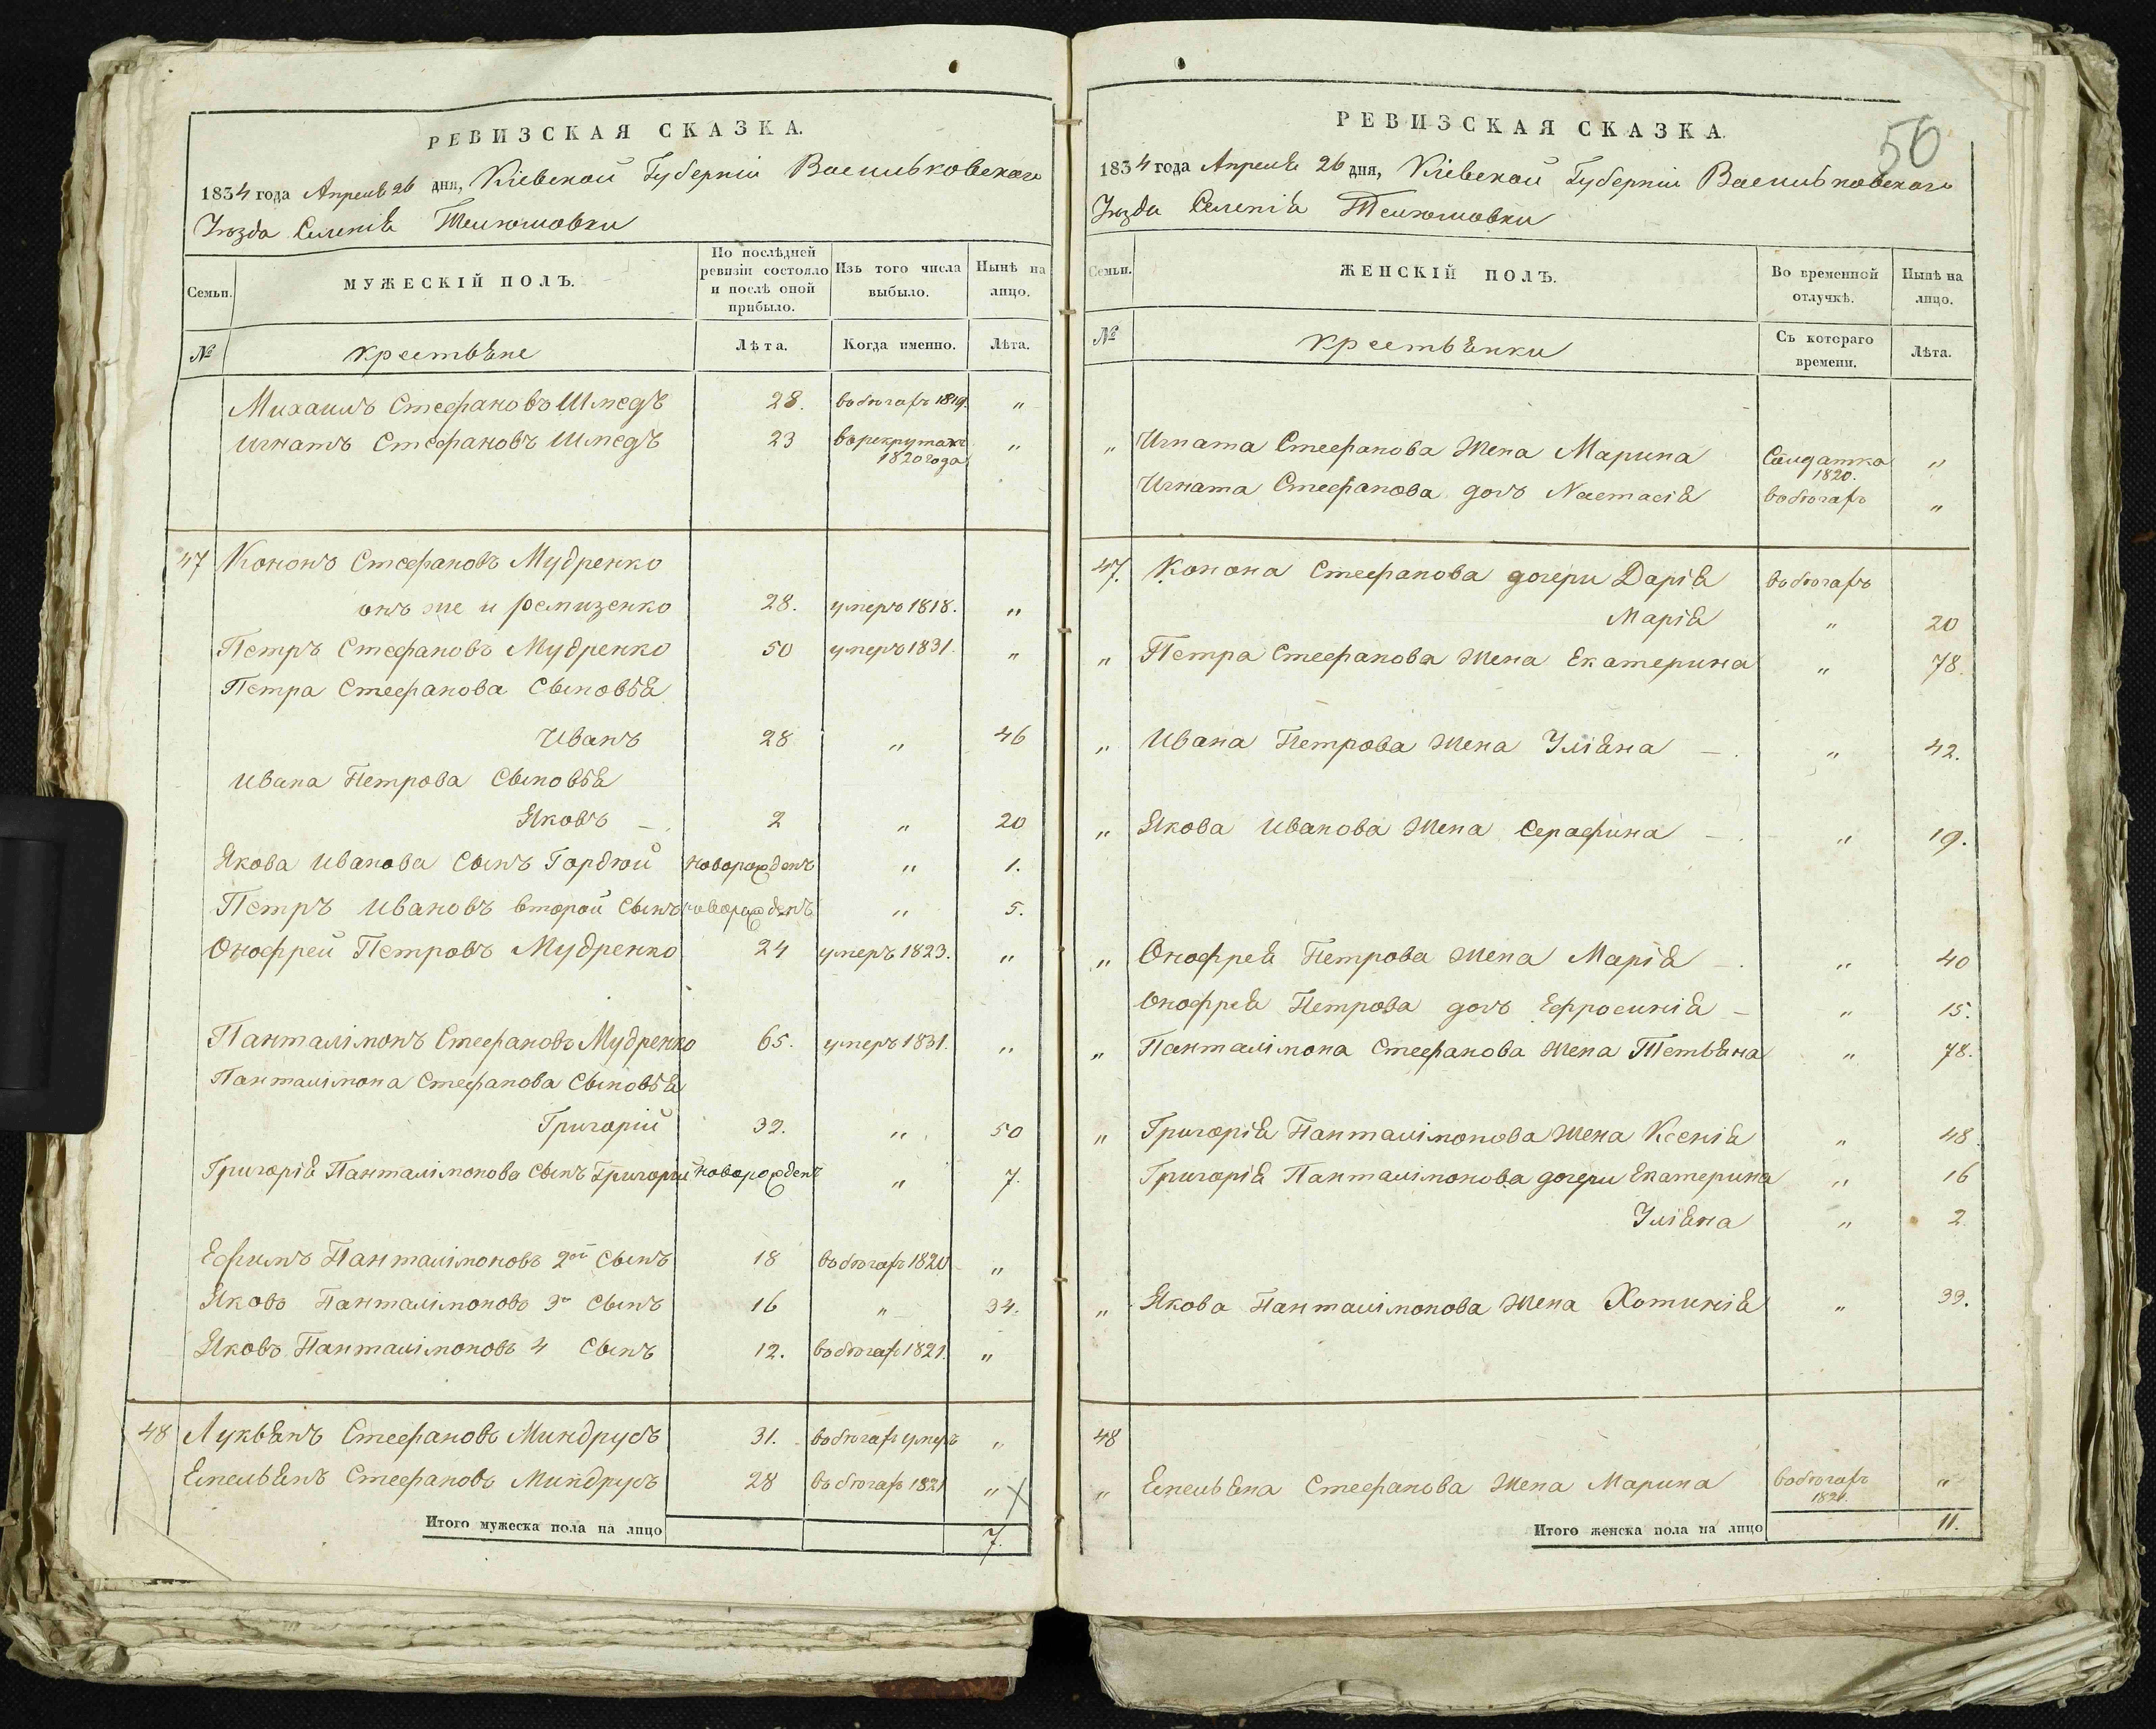 РЕВИЗСКАЯ СКАЗКА.
1834 года Апреля 26 дня, Кіевской Губерніи Васильковского
Уѣзда Селенія
Семьи.
МУЖЕСКІЙ ПОЛЪ.
По послѣдней ревизіи состояло и послѣ оной прибыло.
Изъ того числа выбыло.
Нынѣ на лицо.
№
крестьяне
Лѣта.
Когда именно.
Лѣта.
Михаилъ Стефановъ Шмедъ 28. въ бѣгахъ 1819. "
Игнатъ Стефановъ Шмедъ 23 въ рекрутахъ "
1820 года
47 Кононъ Стефановъ Мудренко
онъ же и Ремизенко 28. умеръ 1818. "
Петръ Стефановъ Мудренко 50 умеръ 1831. "
Петра Стефанова Сыновья
Иванъ 28 " 46
Ивана Петрова Сыновья
Яковъ – 2 " 20
Якова Иванова Сынъ Гордѣй новорожденъ " 1.
Петръ Ивановъ второй Сынъ новорожденъ " 5.
Онофрей Петровъ Мудренко 24 умеръ 1823. "
Пантелімонъ Стефановъ Мудренко 65. умеръ 1831. "
Панталімона Стефанова Сыновья
Григорій 32. " 50
Григорія Панталімонова Сынъ Григорій новорожденъ " 7.
Ефимъ Панталімоновъ 2ой Сынъ 18 въ бѣгахъ 1820 "
Яковъ Панталімоновъ 3й Сынъ 16 " 34.
Яковъ Панталімоновъ 4 Сынъ 12. въ бѣгахъ 1821. "
48 Лукьянъ Стефановъ Миндрусъ 31. въ бѣгахъ умеръ "
Емельянъ Стефановъ Миндрусъ 28 въ бѣгахъ 1821 "
Итого мужеска пола на лицо 7.
56
РЕВИЗСКАЯ СКАЗКА.
1834 года Апреля 26 дня, Кіевской Губерніи Васильковского
Уѣзда Селенія
Семьи.
ЖЕНСКІЙ ПОЛЪ.
Во временной отлучкѣ.
Нынѣ на лицо.
№
крестьянки
Съ котораго времени.
Лѣта.
" Игната Стефанова Жена Марина Солдатка "
1820.
Игната Стефанова дочь Настасія въ бѣгахъ "
47. Конона Стефанова дочери Дарія въ бѣгахъ
Марія " 20
" Петра Стефанова Жена Екатерина " 78.
" Ивана Петрова Жена Уліяна – " 42.
" Якова Иванова Жена Серафина – " 19.
" Онофрея Петрова Жена Марія – " 40
Онофрея Петрова дочь Ефросинія – " 15.
" Панталімона Стефанова Жена Тетьяна " 78.
" Григорія Панталімонова Жена Ксенія " 48.
Григорія Панталімонова дочери Екатерина " 16
Уліяна " 2
" Якова Панталімонова Жена Хотинія " 33.
48
" Емельяна Стефанова Жена Марина въ бѣгахъ "
1821.
Итого женска пола на лицо 11.